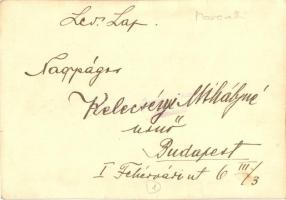 Lev. Lap.
Nagyságos
Kelecsényi Mihályné
úrnő
Budapest
I Fehérvári út 6 III/3